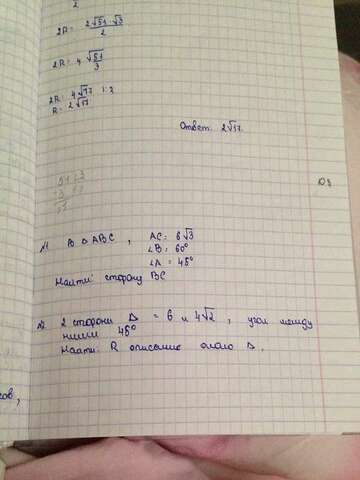 2
2R = 2√51 · √3 / 2
2R = 4 √51 / 3
2R = 4√17 | : 2
R = 2√17
Ответ: 2√17.
D3
№1 В △ ABC, AC = 6√3
∠B = 60°
∠A = 45°
Найти: сторону BC
№2 2 стороны △ = 6 и 4√2, угол между
ними 45°
Найти: R описанно около △.